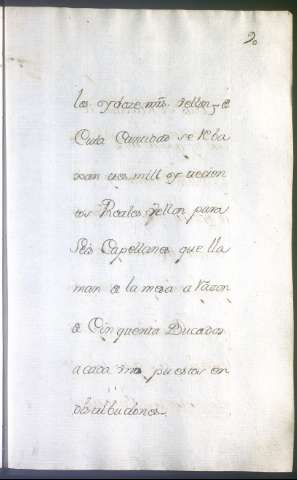 2.
los y doze mrs. Vellon, de
Cuda Cantidad se reba
xan tres mill y treccien
tos Reales Vellon para
Seis Capellanes que lla
man de la mesa a razon
de Cinquenta Ducados
a cada uno puestos en
distribuciones.